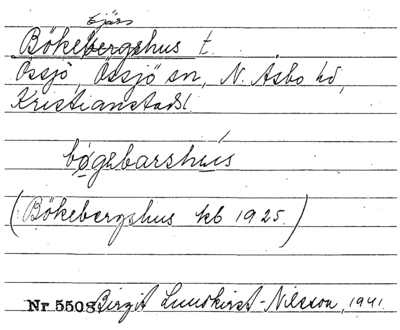 Bjärs
Bökebergshus t.
Össjö, Össjö sn, N. Åsbo hd,
Kristianstads l.
bøgebarshuis
(Bökebergshus kb 1925.)
Nr 5508 Birgit Lundkvist-Nilsson, 1941.